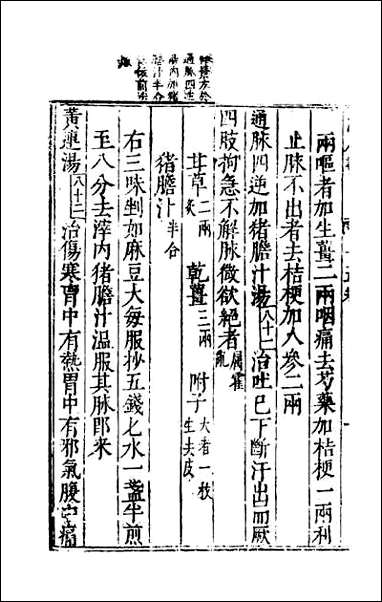 兩嘔者加生薑二兩咽痛去芍藥加桔梗一兩利
止脉不出者去桔梗加人參二兩
通脉四逆加猪膽汁湯八十二治吐已下斷汗出而厥
四肢拘急不解脉微欲絶者屬霍亂
甘草二兩炙 乾薑三兩 附子大者一枚生去皮
猪膽汁半合
右三味剉如麻豆大每服抄五錢匕水一盞半煎
至八分去滓内猪膽汁温服其脉即来
黃連湯八十三治傷寒胷中有熱胃中有邪氣腹中痛